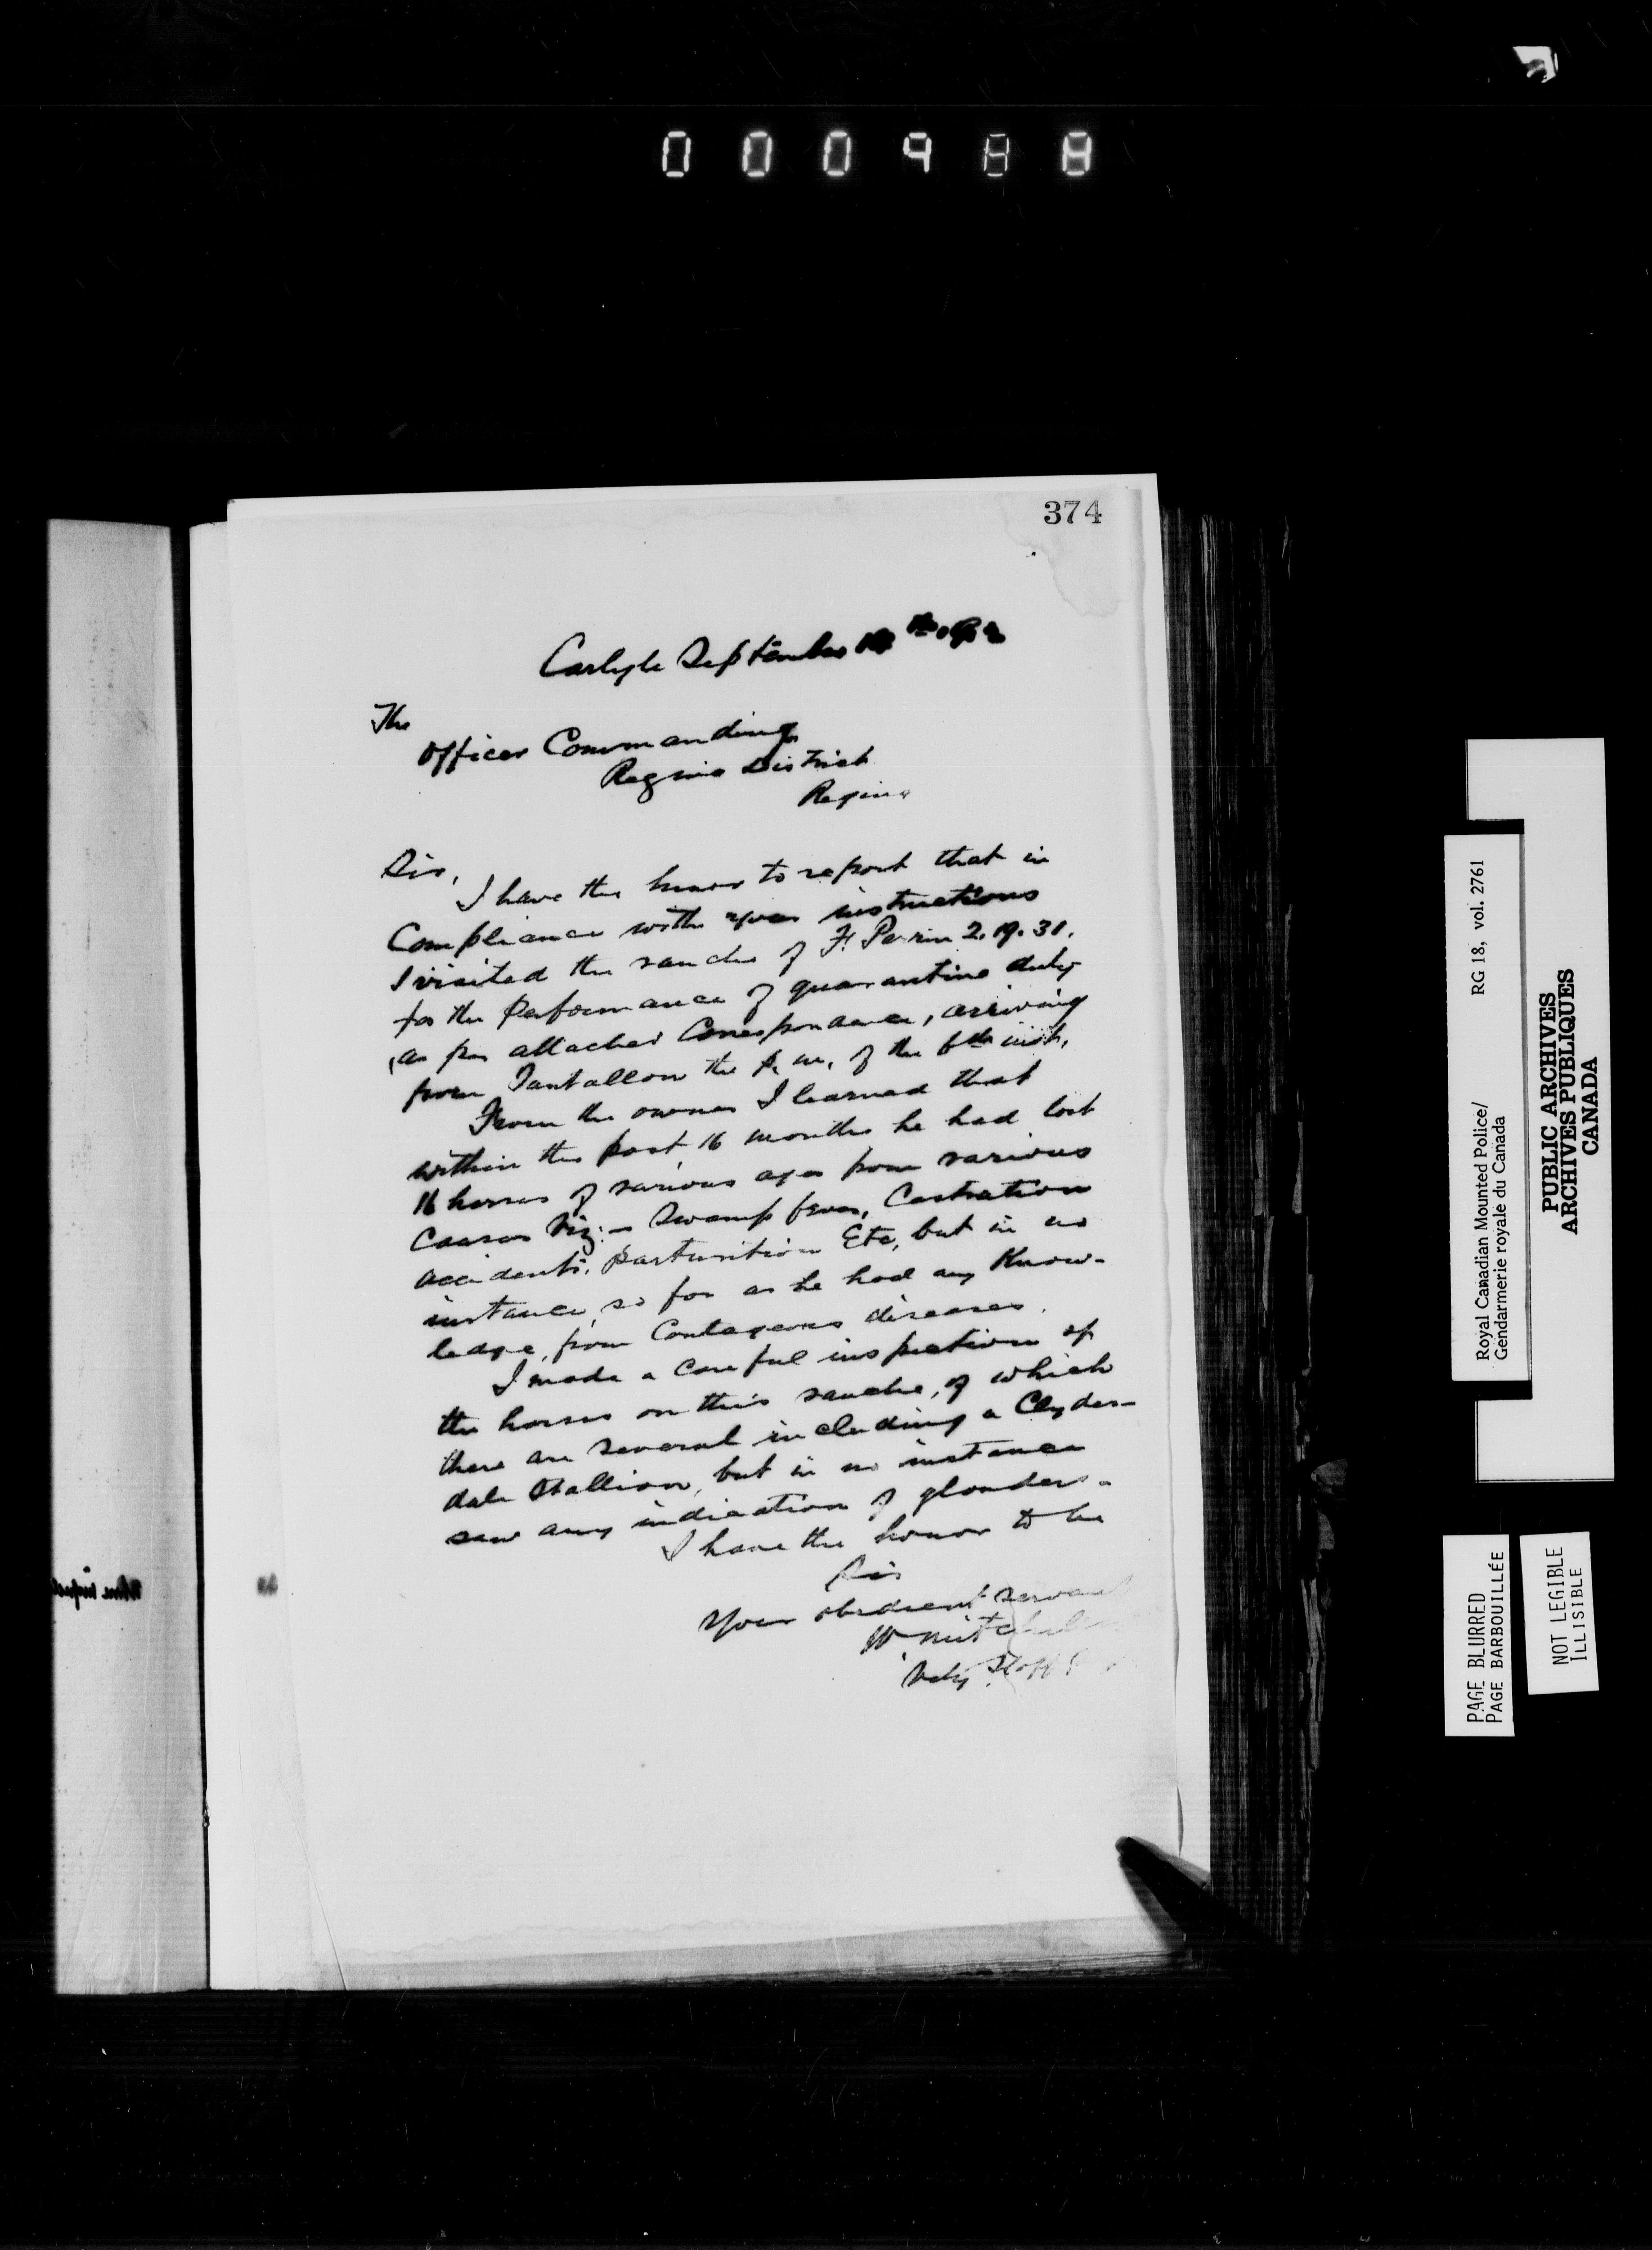 000988
374
Carlyle September
The
Officer Commanding
Regina District
Regina
Sir,
I have the honor to report that in
Compliance with your instructions
I visited the ranche of F. Perrin 2.19.31.
for the Performance of quarantine duty
as per attached Correspondence, arriving
from Tantallon the p.m. of the 6th inst.
From the owner I learned that
within the past 16 months he had lost
16 horses of various ages from various
Causes Viz:- Swamp fever, Castration
accidents, parturition Etc, but in no
instance, so far as he had any Know-
ledge, from Contageous diseases.
I made a careful inspection of
the horses on this ranche, of which
there are several including a Clydes-
dale Stallion, but in no instance
saw any indication of glanders.
I have the honor to be
Sir
Your obedient servant
W Mitchel
Vety. Staff
Royal Canadian Mounted Police/ RG 18, vol. 2761
Gendarmerie royale du Canada
PUBLIC ARCHIVES
ARCHIVES PUBLIQUES
CANADA
PAGE BLURRED
PAGE BARBOUILLÉE
NOT LEGIBLE
ILLISIBLE